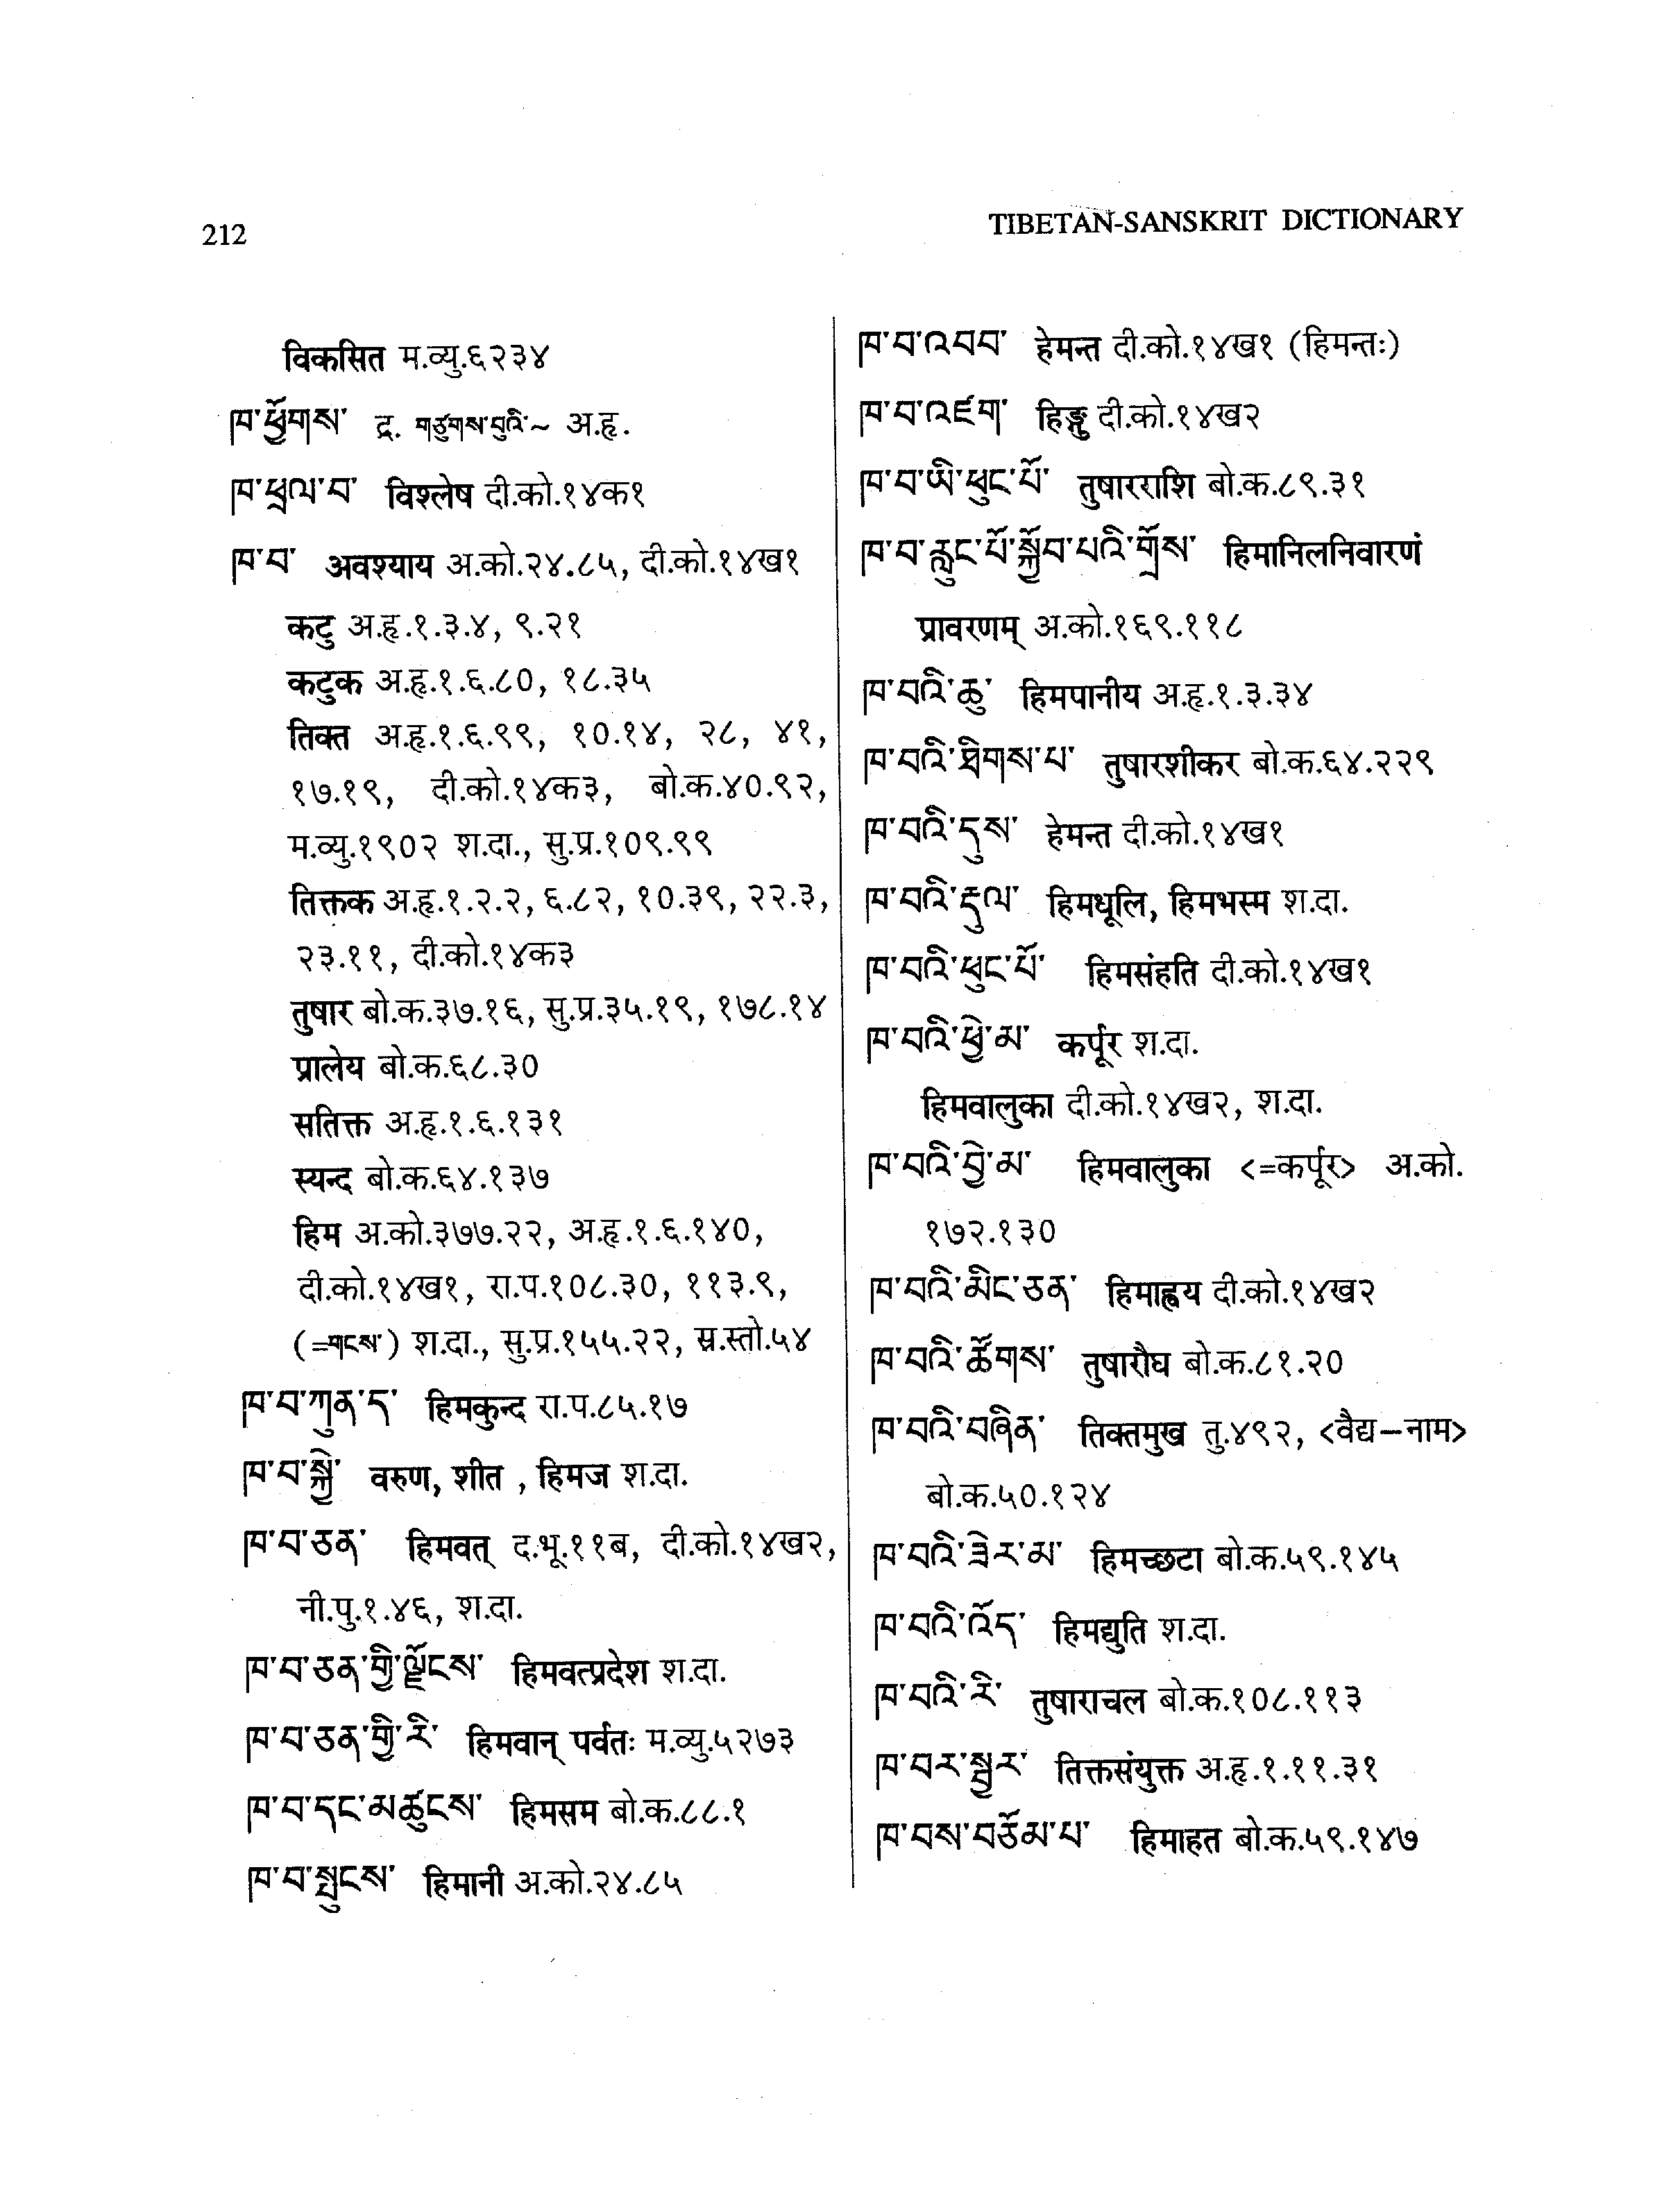 212
TIBETAN-SANSKRIT DICTIONARY
विकसित म.व्यु.६२३४
ཁ་ཕྱོགས་ द्र. གཙུགས་བུའི་~ अ.हृ.
ཁ་ཕྲལ་བ་ विश्लेष दी.को.१४क१
ཁ་བ་ अवश्याय अ.को.२४.८५, दी.को.१४ख१
कटु अ.हृ.१.३.४, ९.२१
कटुक अ.हृ.१.६.८०, १८.३५
तिक्त अ.हृ.१.६.९९, १०.१४, २८, ४१,
१७.१९, दी.को.१४क३, बो.क.४०.९२,
म.व्यु.१९०२ श.दा., सु.प्र.१०९.९९
तिक्तक अ.हृ.१.२.२, ६.८२, १०.३९, २२.३,
२३.११, दी.को.१४क३
तुषार बो.क.३७.१६, सु.प्र.३५.१९, १७८.१४
प्रालेय बो.क.६८.३०
सतिक्त अ.हृ.१.६.१३१
स्यन्द बो.क.६४.१३७
हिम अ.को.३७७.२२, अ.हृ.१.६.१४०,
दी.को.१४ख१, रा.प.१०८.३०, ११३.९,
(=གངས་) श.दा., सु.प्र.१५५.२२, स्र.स्तो.५४
ཁ་བ་ཀུན་ད་ हिमकुन्द रा.प.८५.१७
ཁ་བ་སྐྱེ་ वरुण, शीत , हिमज श.दा.
ཁ་བ་ཅན་ हिमवत् द.भू.११ब, दी.को.१४ख२,
नी.पु.१.४६, श.दा.
ཁ་བ་ཅན་གྱི་ལྗོངས་ हिमवत्प्रदेश श.दा.
ཁ་བ་ཅན་གྱི་རི་ हिमवान् पर्वतः म.व्यु.५२७३
ཁ་བ་དང་མཚུངས་ हिमसम बो.क.८८.१
ཁ་བ་སྤུངས་ हिमानी अ.को.२४.८५
ཁ་བ་འབབ་ हेमन्त दी.को.१४ख१ (हिमन्तः)
ཁ་བ་འཛག་ हिङ्गु दी.को.१४ख२
ཁ་བ་ཡི་ཕུང་པོ་ तुषारराशि बो.क.८९.३१
ཁ་བ་རླུང་པོ་སྐྱོབ་པའི་གྲོས་ हिमानिलनिवारणं
प्रावरणम् अ.को.१६९.११८
ཁ་བའི་ཆུ་ हिमपानीय अ.हृ.१.३.३४
ཁ་བའི་ཐིགས་པ་ तुषारशीकर बो.क.६४.२२९
ཁ་བའི་དུས་ हेमन्त दी.को.१४ख१
ཁ་བའི་རྡུལ་ हिमधूलि, हिमभस्म श.दा.
ཁ་བའི་ཕུང་པོ་ हिमसंहति दी.को.१४ख१
ཁ་བའི་ཕྱེ་མ་ कर्पूर श.दा.
हिमवालुका दी.को.१४ख२, श.दा.
ཁ་བའི་བྱེ་མ་ हिमवालुका <=कर्पूर> अ.को.
१७२.१३०
ཁ་བའི་མིང་ཅན་ हिमाह्वय दी.को.१४ख२
ཁ་བའི་ཚོགས་ तुषारौघ बो.क.८१.२०
ཁ་བའི་བཞིན་ तिक्तमुख तु.४९२, <वैद्य–नाम>
बो.क.५०.१२४
ཁ་བའི་ཟེར་མ་ हिमच्छटा बो.क.५९.१४५
ཁ་བའི་འོད་ हिमद्युति श.दा.
ཁ་བའི་རི་ तुषाराचल बो.क.१०८.११३
ཁ་བར་སྦྱར་ तिक्तसंयुक्त अ.हृ.१.११.३१
ཁ་བས་བཅོམ་པ་ हिमाहत बो.क.५९.१४७